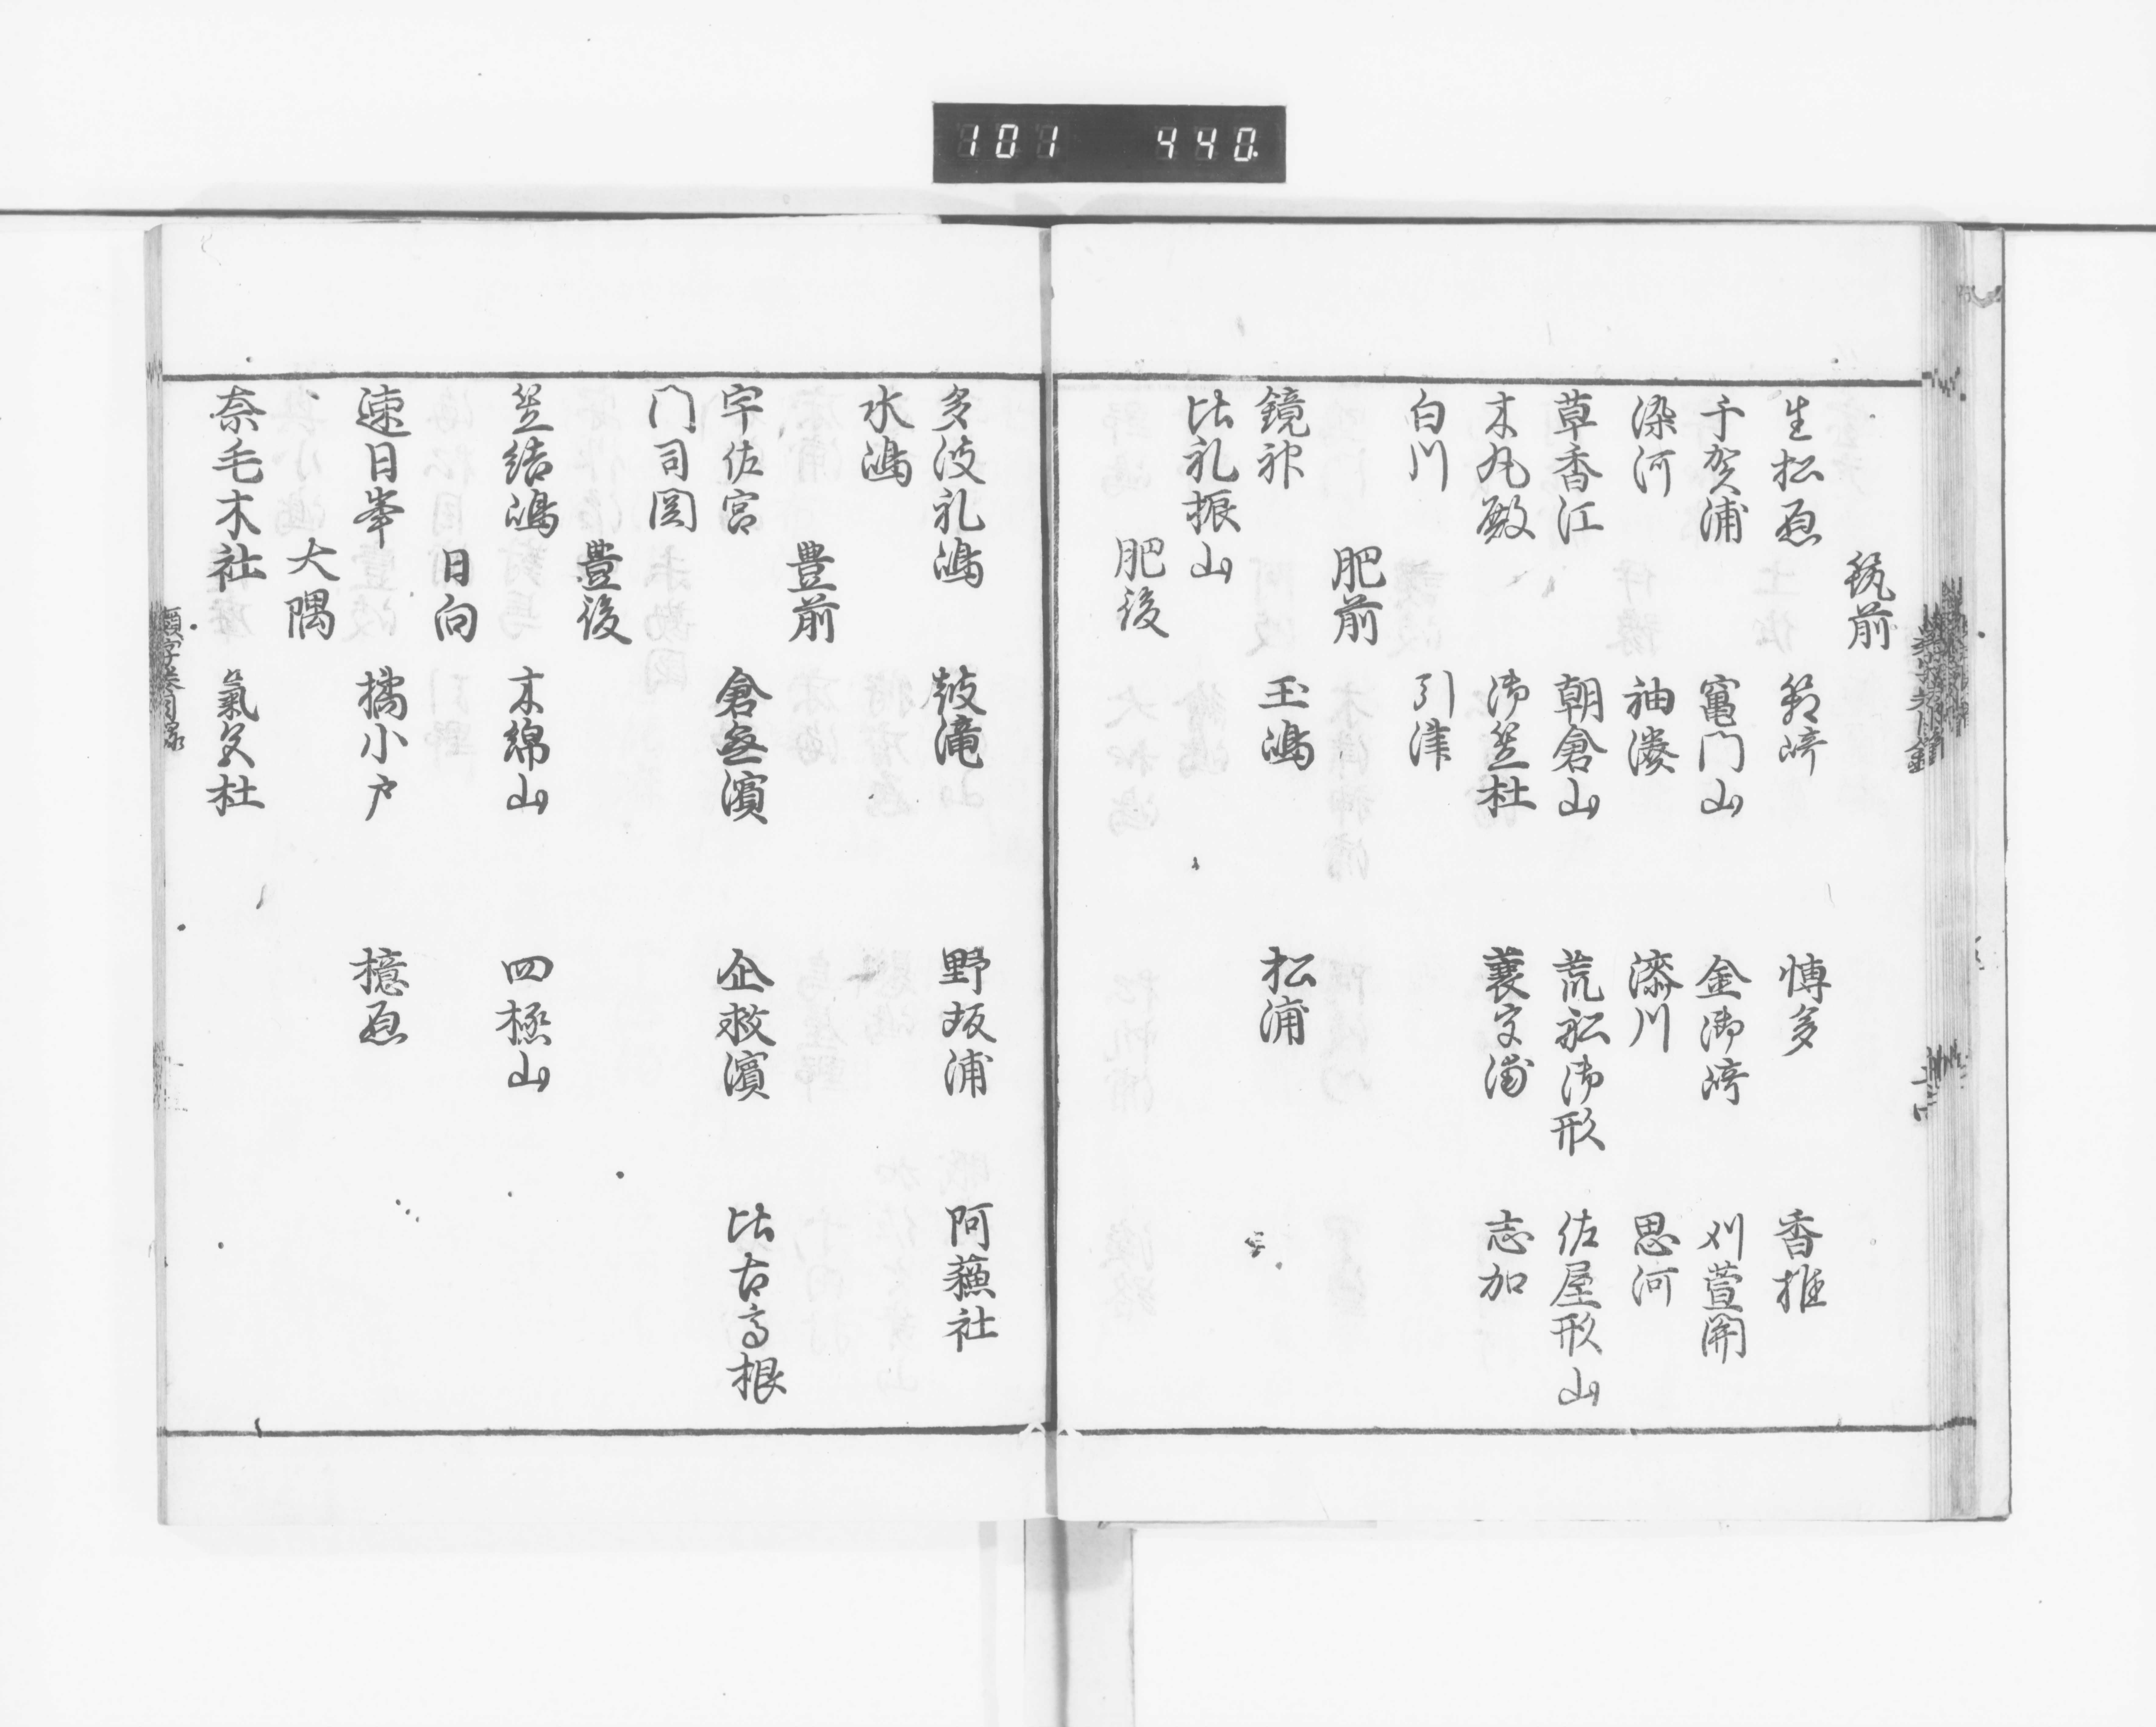 101 440
筑前
生松原 筥崎 博多 香椎
千賀浦 竃門山 金御崎 刈萱関
染河 袖湊 漆川 思河
草香江 朝倉山 荒船御形 佐屋形山
木丸殿 御笠杜 蓑生浦 志加
白川 引津
肥前
鏡神 玉嶋 松浦
比礼振山
肥後
多波礼嶋 鼓滝 野坂浦 阿蘓社
水嶋
豊前
宇佐宮 倉無濱 企救濱 比古高根
门司関
豊後
笠結嶋 木綿山 四極山
日向
速日峯 橘小戸 檍原
大隅
奈毛木社 氣色杜
類字巻目録